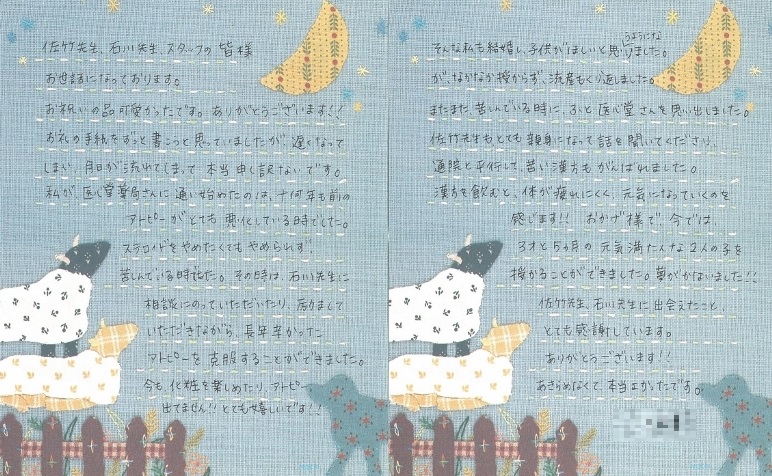 佐竹先生、石川先生、スタッフの皆様
お世話になっております。
お祝いの品可愛かったです。ありがとうございます!!
お礼の手紙をずっと書こうと思っていましたが、遅くなって
しまい、月日が流れてしまって本当申し訳ないです。
私が、医心堂薬局さんに通い始めたのは、十何年も前の
アトピーがとても悪化している時でした。
ステロイドをやめたくてもやめられず、
苦しんでいる時でした。その時は、石川先生に
相談にのっていただいたり、励まして
いただきながら、長年辛かった
アトピーを克服することができました。
今も、化粧を楽しめたり、アトピー
出てません!!とても嬉しいです!!
そんな私も結婚し、子供がほしいと思うようになりました。
が、なかなか授からず、流産もくり返しました。
またまた苦しんでいる時に、ふと医心堂さんを思い出しました。
佐竹先生もとても親身になって話を聞いてくださり、
通院と平行して、苦い漢方もがんばれました。
漢方を飲むと、体が疲れにくく、元気になっていくのを
感じます!!おかげ様で今では、
3才と5ヵ月の元気満たんな2人の子を
授かることができました。夢がかないました!!
佐竹先生、石川先生に出会えたこと、
とても感謝しています。
ありがとうございます!!
あきらめなくて、本当よかったです。